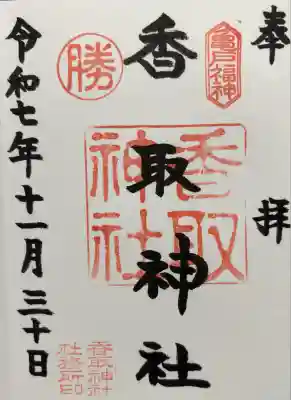 奉拝
亀戸福神
香取神社
香取神社
勝
香取神社
社務所印
令和七年十一月三十日